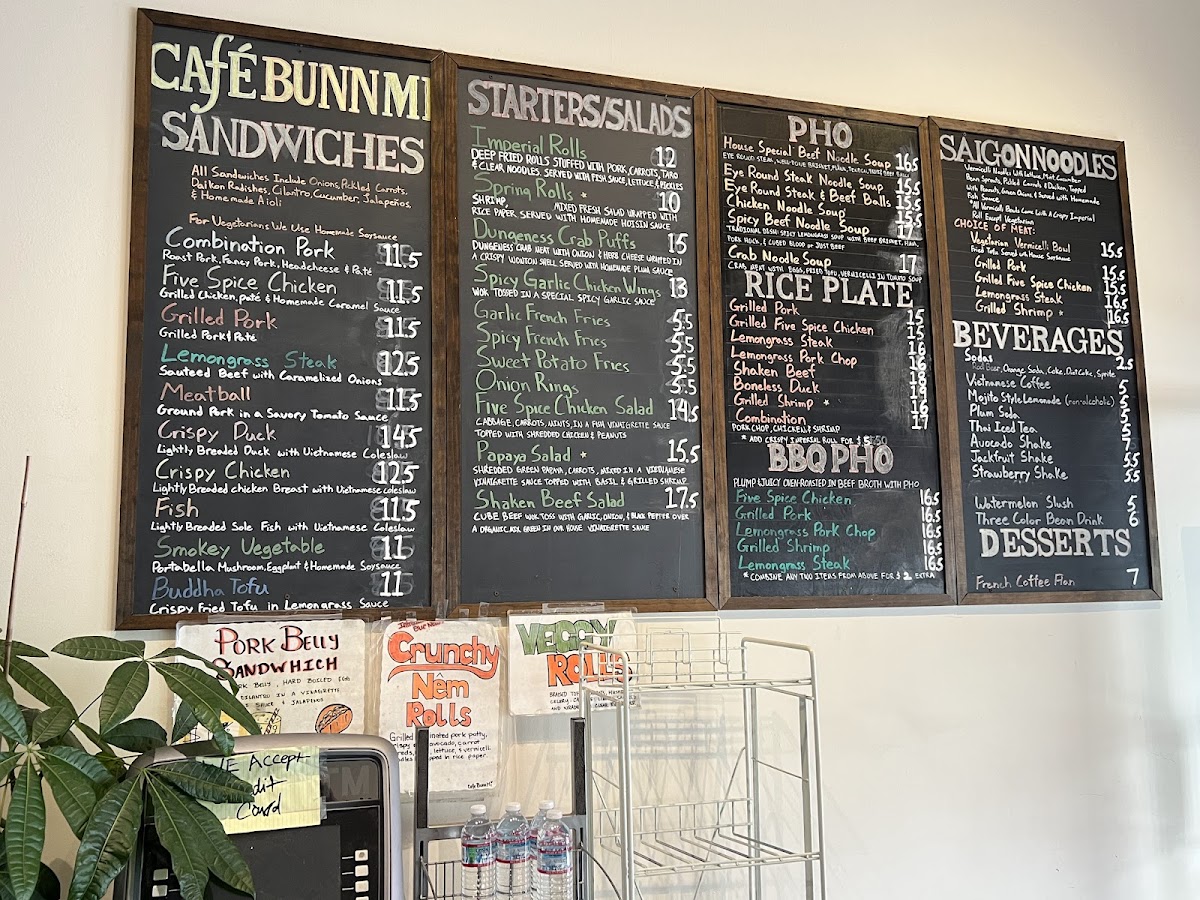 CAFÉ BUNN MI
SANDWICHES
All Sandwiches Include Onions, Pickled Carrots,
Daikon Radishes, Cilantro, Cucumber, Jalapeños,
& Homemade Aioli
For Vegetarians We Use Homemade Soysauce
Combination Pork 11.5
Roast Pork, Fancy Pork, Headcheese & Paté
Five Spice Chicken 11.5
Grilled Chicken, paté & Homemade Caramel Sauce
Grilled Pork 11.5
Grilled Pork & Paté
Lemongrass Steak 12.5
Sauteed Beef with Caramelized Onions
Meatball 11.5
Ground Pork in a Savory Tomato Sauce
Crispy Duck 14.5
Lightly Breaded Duck with Vietnamese Coleslaw
Crispy Chicken 12.5
Lightly Breaded chicken Breast with Vietnamese coleslaw
Fish 11.5
Lightly Breaded Sole Fish with Vietnamese Coleslaw
Smokey Vegetable 11
Portabella Mushroom, Eggplant & Homemade Soysauce
Buddha Tofu 11
Crispy Fried Tofu in Lemongrass Sauce
STARTERS/SALADS
Imperial Rolls 12
DEEP FRIED ROLLS STUFFED WITH PORK, CARROTS, TARO
& CLEAR NOODLES. SERVED WITH FISH SAUCE, LETTUCE, & PICKLES
Spring Rolls * 10
SHRIMP, MIXED FRESH SALAD WRAPPED WITH
RICE PAPER. SERVED WITH HOMEMADE HOISIN SAUCE
Dungeness Crab Puffs 15
DUNGENESS CRAB MEAT WITH ONION & HERB CHEESE WRAPPED IN
A CRISPY WONTON SHELL SERVED WITH HOMEMADE PLUM SAUCE
Spicy Garlic Chicken Wings 13
WOK TOSSED IN A SPECIAL SPICY GARLIC SAUCE
Garlic French Fries 5.5
Spicy French Fries 5.5
Sweet Potato Fries 5.5
Onion Rings 5.5
Five Spice Chicken Salad 14.5
CABBAGE, CARROTS, MINTS, IN A FISH VINAIGRETTE SAUCE
TOPPED WITH SHREDDED CHICKEN & PEANUTS
Papaya Salad * 15.5
SHREDDED GREEN PAPAYA, CARROTS, MIXED IN A VIETNAMESE
VINAIGRETTE SAUCE TOPPED WITH BASIL & GRILLED SHRIMP
Shaken Beef Salad 17.5
CUBE BEEF WOK TOSS WITH GARLIC, ONION, & BLACK PEPPER OVER
A ORGANIC MIX GREEN IN OUR HOUSE VINAIGRETTE SAUCE
PHO
House Special Beef Noodle Soup 16.5
EYE ROUND STEAK, WELL-DONE BRISKET, FLANK, TENDON, TRIPE, BEEF BALLS
Eye Round Steak Noodle Soup 15.5
Eye Round Steak & Beef Balls 15.5
Chicken Noodle Soup 15.5
Spicy Beef Noodle Soup 17
TRADITIONAL DISH: SPICY LEMONGRASS SOUP WITH BEEF BRISKET, HAM,
PORK HOCK, & CUBED BLOOD or JUST BEEF
Crab Noodle Soup 17
CRAB MEAT WITH EGGS, FRIED TOFU, VERMICELLI IN TOMATO SOUP
RICE PLATE
Grilled Pork 15
Grilled Five Spice Chicken 15
Lemongrass Steak 16
Lemongrass Pork Chop 16
Shaken Beef 18
Boneless Duck 19
Grilled Shrimp * 16
Combination 17
PORK CHOP, CHICKEN, & SHRIMP
* ADD CRISPY IMPERIAL ROLL FOR $
BBQ PHO
PLUMP & JUICY OVEN-ROASTED IN BEEF BROTH WITH PHO
Five Spice Chicken 16.5
Grilled Pork 16.5
Lemongrass Pork Chop 16.5
Grilled Shrimp 16.5
Lemongrass Steak 16.5
* COMBINE ANY TWO ITEMS FROM ABOVE FOR $ 2 EXTRA
SAIGON NOODLES
Vermicelli Noodles With Lettuce, Mint, Cucumber
Bean Sprouts, Pickled Carrots & Daikon, Topped
with Peanuts, Green Onions & Served with Homemade
Fish Sauce
*All Vermicelli Bowls Come With A Crispy Imperial
Roll Except Vegetarian
CHOICE OF MEAT:
Vegetarian Vermicelli Bowl 15.5
Fried Tofu Served with House Soysauce
Grilled Pork 15.5
Grilled Five Spice Chicken 15.5
Lemongrass Steak 16.5
Grilled Shrimp * 16.5
BEVERAGES
Sodas 2.5
Root Beer, Orange Soda, Coke, Diet Coke, Sprite
Vietnamese Coffee 5
Mojito Style Lemonade (non-alcoholic) 5
Plum Soda 5
Thai Iced Tea 5
Avocado Shake 7
Jackfruit Shake 5.5
Strawberry Shake 5.5
Watermelon Slush 5
Three Color Bean Drink 6
DESSERTS
French Coffee Flan 7
PORK BELLY
SANDWHICH
BELLY, HARD BOILED EGG
CILANTRO IN A VINAGRETTE
SAUCE & JALAPEÑO
Crunchy
Nêm
Rolls
Grilled pork patty,
avocado, carrot
lettuce, & vermicelli
wrapped in rice paper.
Cafe Bunn Mi
VEGGY
ROLLS
WE Accept
Credit
Card